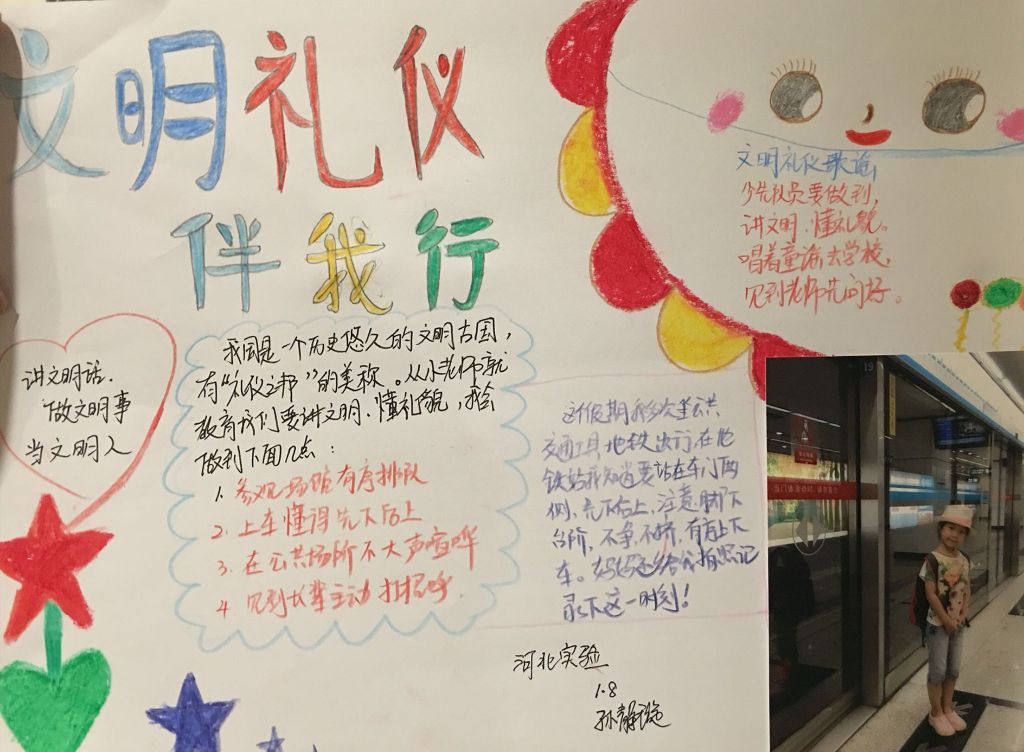 文明礼仪
伴我行
文明礼仪歌谣
少先队员要做到,
讲文明、懂礼貌。
唱着童谣去学校,
见到老师先问好。
讲文明话.
做文明事
当文明人
我国是一个历史悠久的文明古国,
有“礼仪之邦”的美称。从小老师就
教育我们要讲文明、懂礼貌,我会
做到下面几点:
1. 参观场馆有序排队
2. 上车懂得先下后上
3. 在公共场所不大声喧哗
4. 见到长辈主动打招呼.
这个假期我多次坐公共
交通工具地铁出行,在地
铁站我知道要站在车门两
侧,先下后上,注意脚下
台阶,不争不挤,有序上下
车。妈妈还给我拍照记
录下这一时刻!
河北实验
1.8
孙静
19